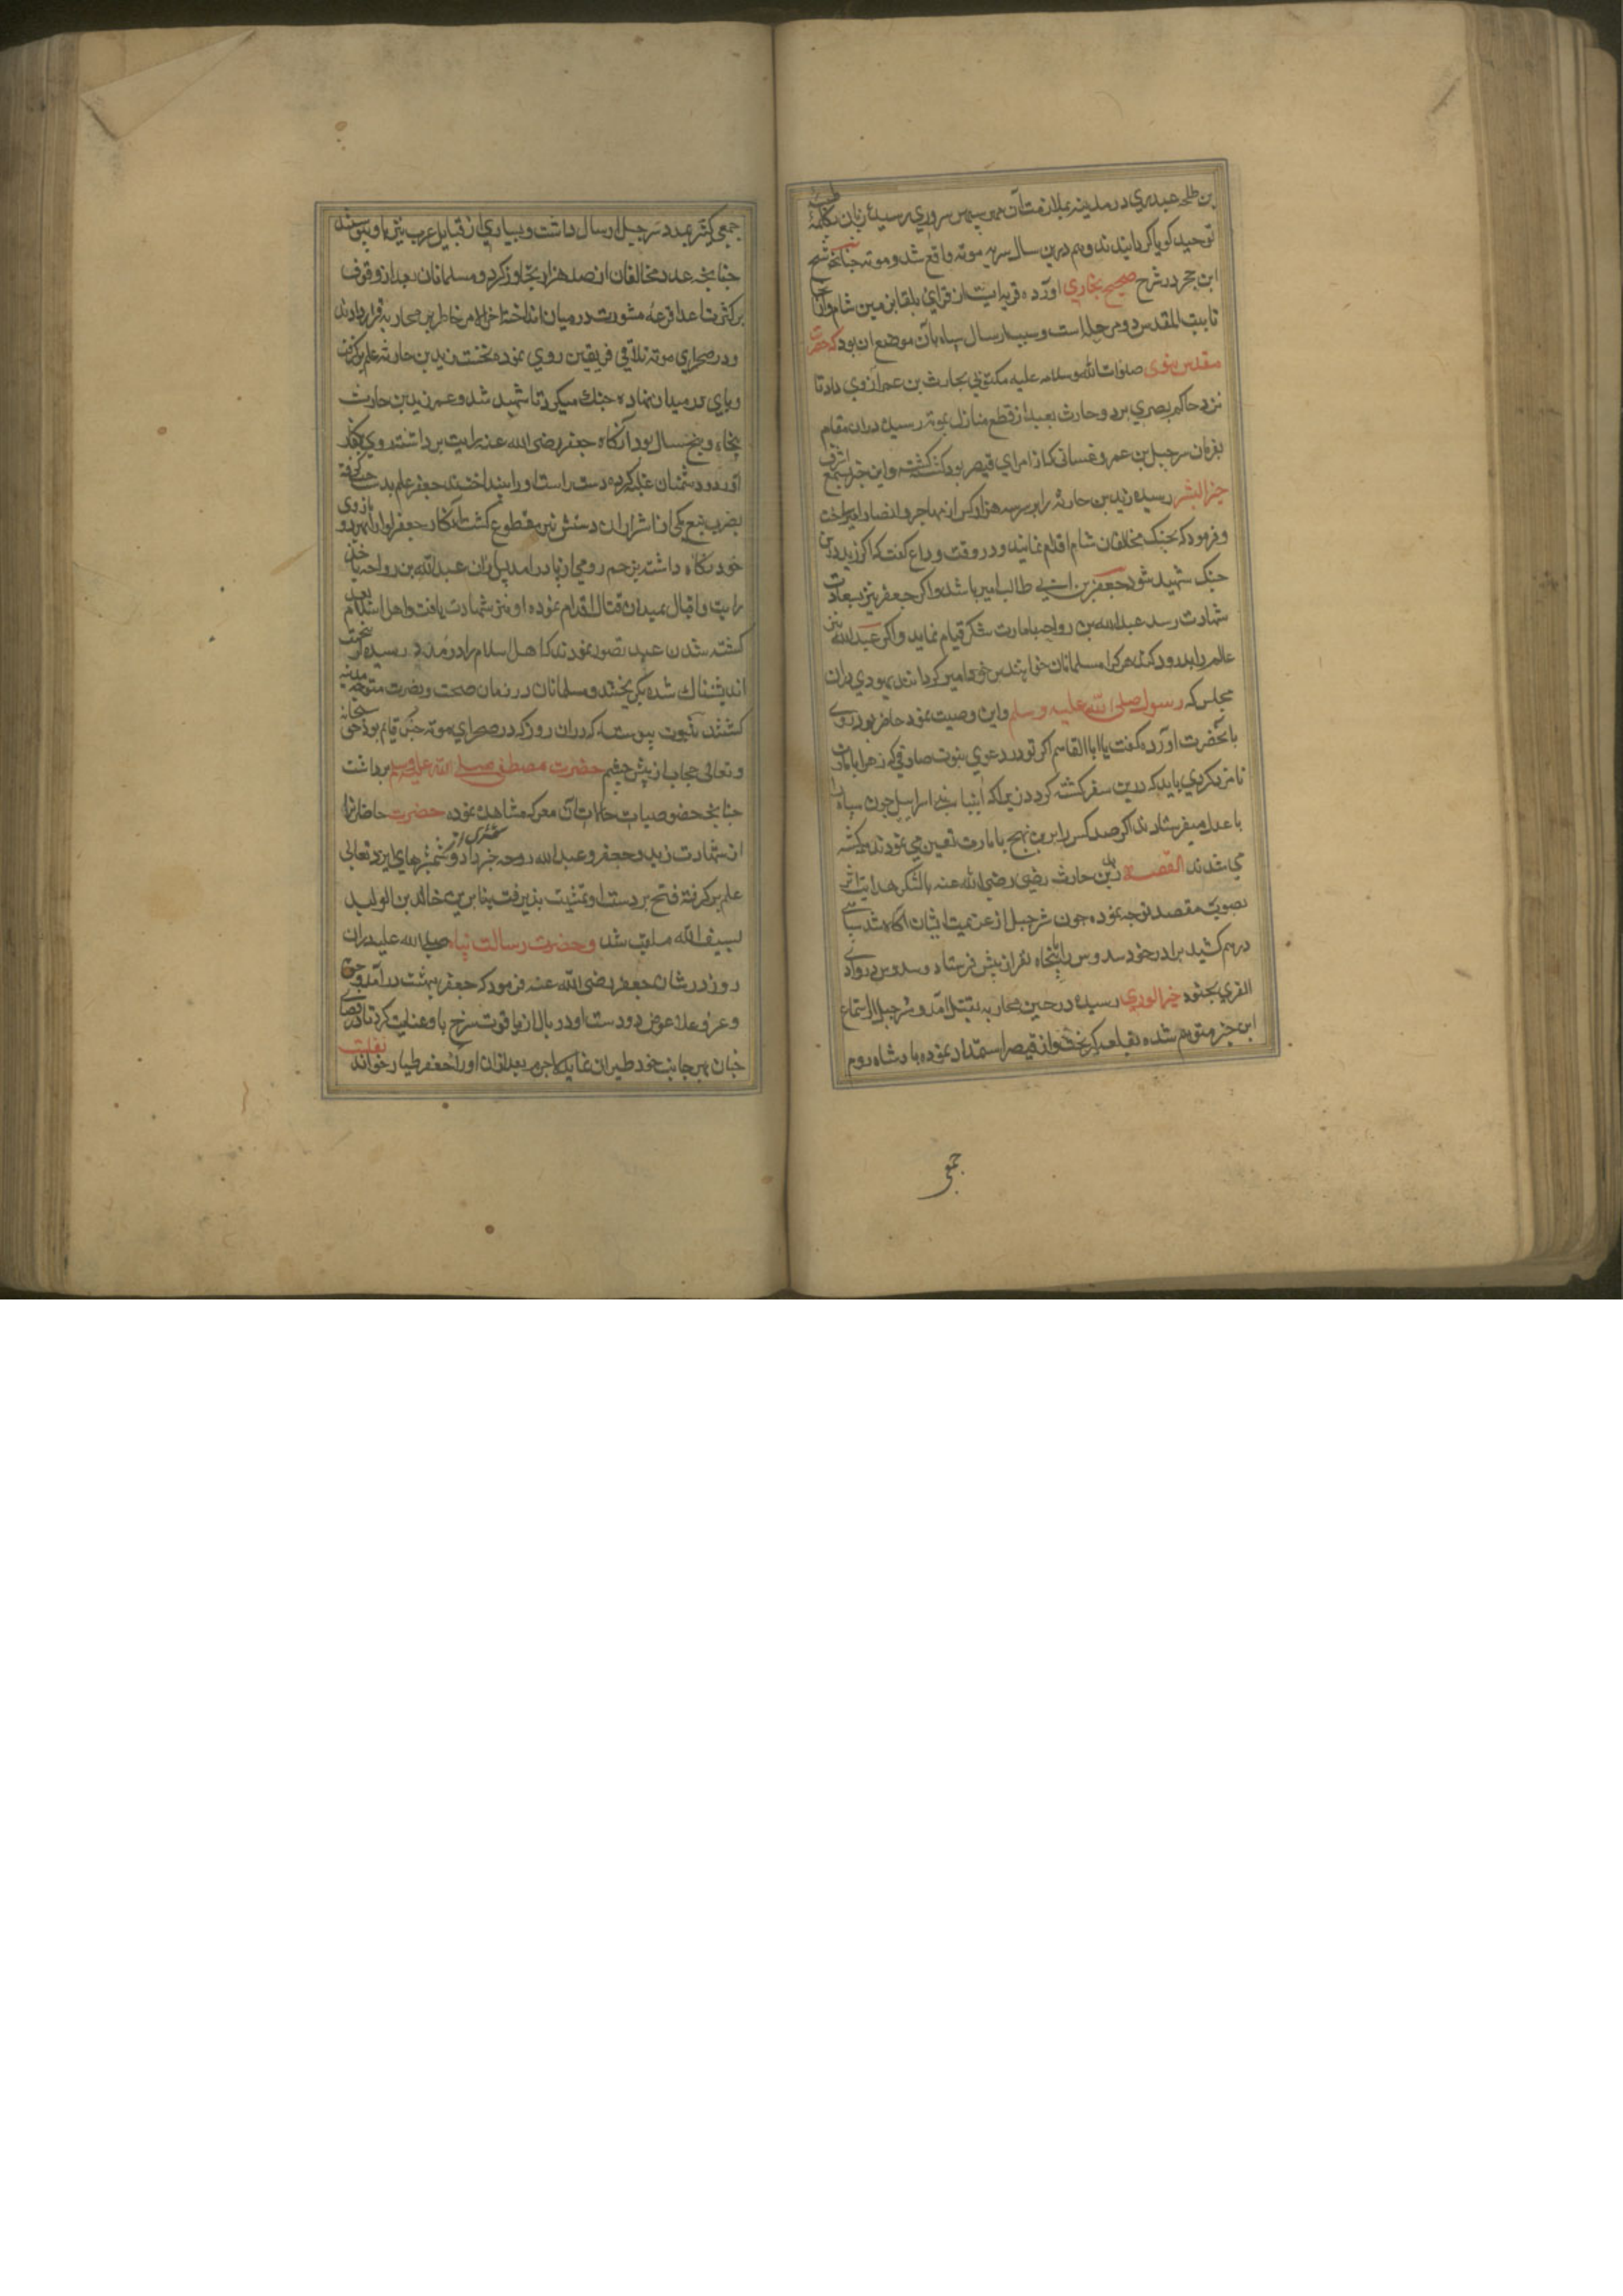 بن طلحه عبدری در مدینه بملازمت آن سپهر سروری رسیده زبان بکلمهٔ طیبه
توحید کویا کردانیدند و هم درین سال سریه موته واقع شد و موته چنانچه شیخ
ابن حجر در شرح صحیح بخاری آورده قریه ایست از قرای بلقا بزمین شام و از آنجا
تا بیت المقدس دو مرحله است و سبب ارسال سپاه بآن موضع آن بود که حضرت
مقدس نبوی صلوات الله وسلامه علیه مکتوبی بحارث بن عمر ازدی داد تا
نزد حاکم بصری برد و حارث بعد از قطع منازل بموته رسیده در آن مقام
بفرمان شرجیل بن عمرو غسانی که از امرای قیصر بود کشته کشت و این خبر بسمع اشرف
خیر البشر رسیده زید بن حارثه را بر سه هزار کس از مهاجر و انصار امیر ساخت
و فرمود که بجنک مخالفان شام اقدام نمایند و در وقت وداع کفت که اکر زید درین
جنک شهید شود جعفر بن ابی طالب امیر باشد و اکر جعفر نیز بسعادت
شهادت رسد عبدالله بن رواحه بامارت لشکر قیام نماید و اکر عبدالله نیز
عالم را بدرود کند هر کرا مسلمانان خواهند بر خود امیر کردانند یهودی در آن
مجلس که رسول صلی الله علیه وسلم این وصیت نمود حاضر بود روی
بآنحضرت آورده کفت یا ابا القاسم اکر تو در دعوی نبوت صادقی که هر کرا بامارت
نامزد کردی باید که درین سفر کشته کردد زیرا که انبیا بنی اسرائیل چون سپاه را
باعدا میفرستادند اکر صد کس را برین نهج بامارت تعیین می نمودند همه کشته
می شدند القصه زید بن حارث رضی الله عنه بالشکر هدایت اثر
بصوب مقصد توجه نموده چون شرجیل از عزیمت ایشان اکاه شد سپاهی
در هم کشید برادر خود سدوس را با پنجاه نفر از پیش فرستاد و سدوس در وادی
القری بجنود خیر الوری رسیده در حین محاربه بقتل آمد و شرجیل از استماع
این خبر متوهم شده بقلعه کریخت و از قیصر استمداد نموده پادشاه روم
جمعی
جمعی کثیر بمدد شرجیل ارسال داشت و بسیاری از قبایل عرب نیز باو پیوستند
چنانچه عدد مخالفان از صد هزار تجاوز کرد و مسلمانان بعد از وقوف
بر کثرت اعدا قرعه مشورت در میان انداخته آخر الامر خاطر بر محاربه قرار دادند
و در صحرای موته تلاقی فریقین روی نموده نخست زید بن حارثه علم بر کرفت
و پای در میدان نهاده جنک میکرد تا شهید شد و عمر زید بن حارث
پنجاه و پنج سال بود آنکاه جعفر رضی الله عنه رایت برداشته روی بکفار
آورد و دشمنان غلبه کرده دست راست او را بینداختند جعفر علم بدست چپ کرفته
بضرب تیغ یکی از اشرار آن دستش نیز مقطوع کشت آنکاه جعفر لوا را بهر دو بازوی
خود نکاه داشته بزخم رومی از پا در آمد پس از آن عبدالله بن رواحه
رایت و اقبال بمیدان قتال اقدام نموده او نیز شهادت یافت و اهل اسلام بعد
کشته شدن عبد تصور نمودند که اهل سلام را در و مدد رسیده
اندیشناک شده بکریختند و مسلمانان در زمان صحت و نصرت متوجه مدینه
کشتند بثبوت پیوسته که در آن روز که در صحرای موته جنک قایم بود حق سبحانه
و تعالی حجاب از پیش چشم حضرت مصطفی صلی الله علیه وسلم برداشت
چنانچه خصوصیات حالات آن معرکه مشاهده نموده حضرت حاضران را
از شهادت زید و جعفر و عبدالله روحه خبر داد و شمشیری از شمشیرهای ایزد تعالی
علم بر کرفته فتح بر دست او تمشیت پذیرفت بنابرین خالد بن الولید
بسیف الله ملقب شد و حضرت رسالت پناه صلی الله علیه در آن
روز در شان جعفر رضی الله عنه فرمود که جعفر ببهشت در آمد و حق
و عز و علا عوض دو دست او دو بال از یاقوت سرخ باو عنایت کرد تا در فضای
جنان بهر جانب خود طیران نماید لاجرم بعد از آن او را جعفر طیار خواند نقلست